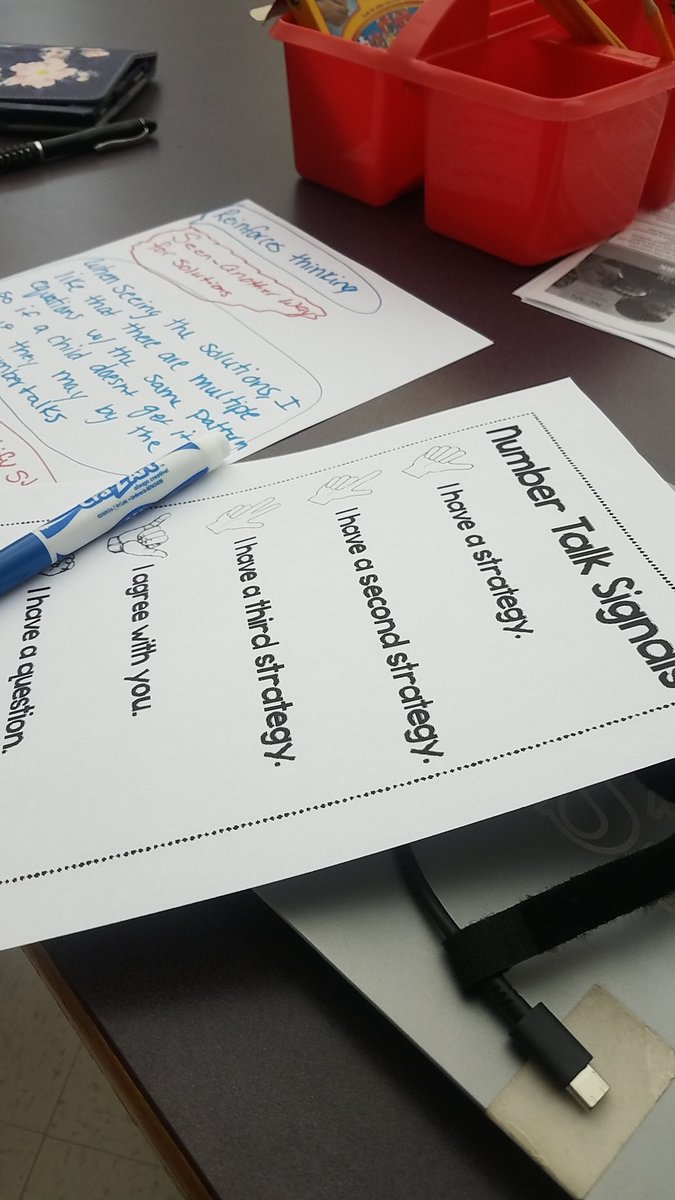 Reinforces thinking
Seen another ways
for solutions
When seeing the solutions I
like that there are multiple
equations w/ the same pattern
so if a child doesnt get it
they may by the
Number Talk Signals
I have a strategy.
I have a second strategy.
I have a third strategy.
I agree with you.
I have a question.